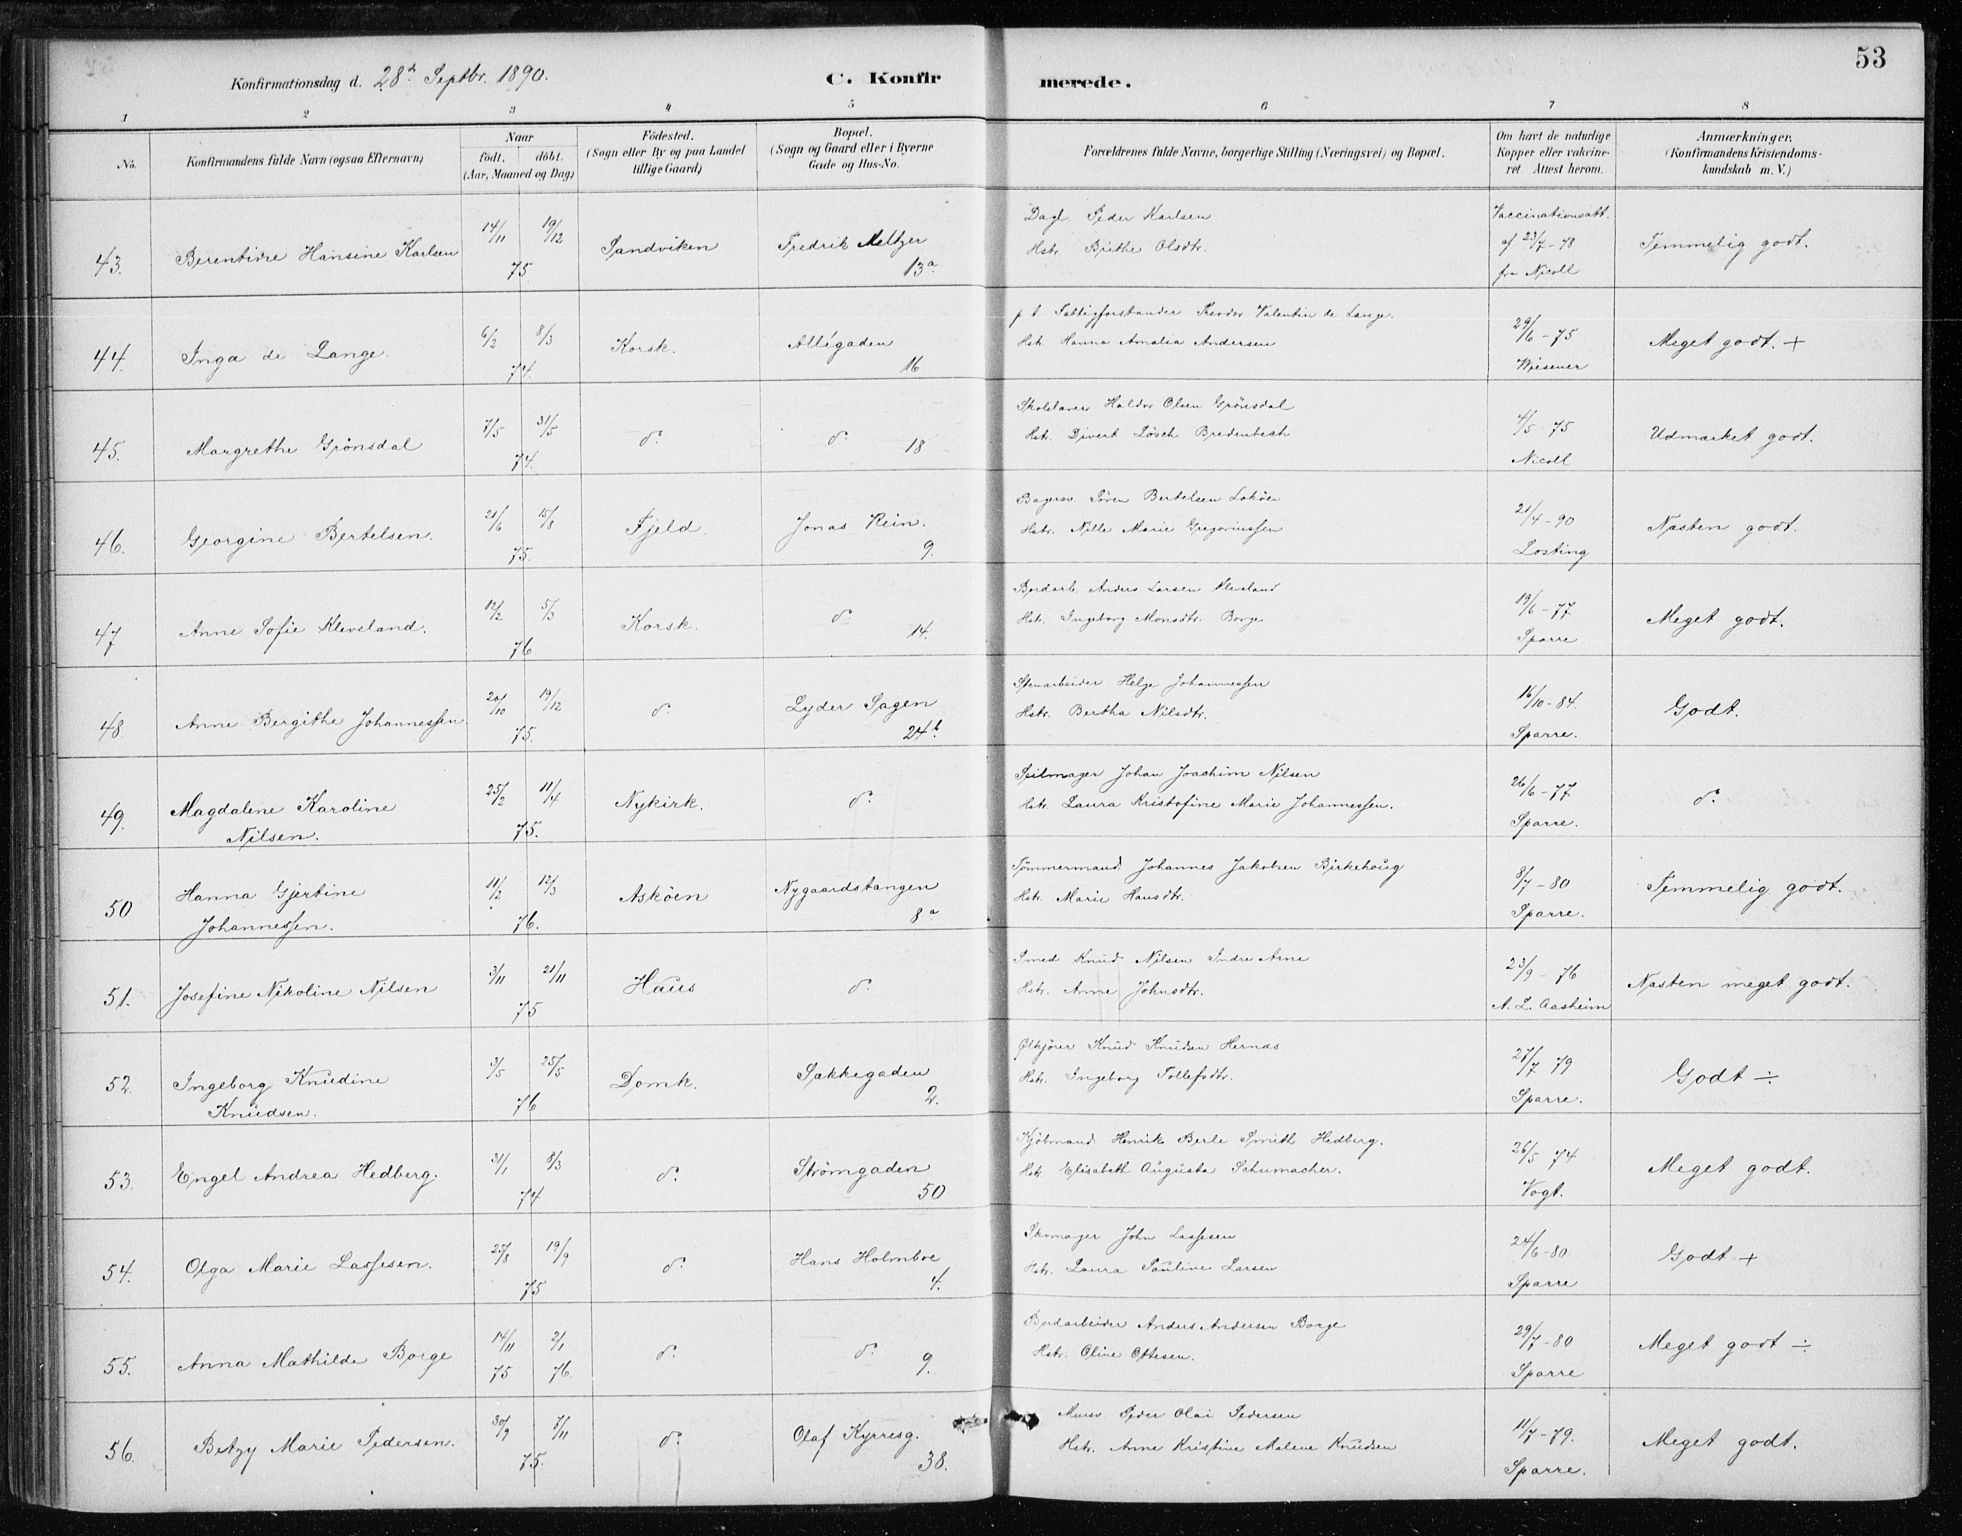 53
Konfirmationsdag d. 28de Septbr. 1890.
C. Konfirmerede.
1 2 3 4 5 6 7 8
No.
Konfirmandens fulde Navn (ogsaa Efternavn)
Naar
født. døbt.
(Aar, Maaned og Dag)
Födested.
(Sogn eller By og paa Landet
tillige Gaard)
Bopæl.
(Sogn og Gaard eller i Byerne
Gade og Hus-No.
Forældrenes fulde Navne, borgerlige Stilling (Næringsvei) og Bopæl.
Om havt de naturlige
Kopper eller vakcine-
ret. Attest herom.
Anmærkninger.
(Konfirmandens Kristendoms-
kundskab m. V.)
43. Berentine Hansine Karlsen 14/11 19/12 75 Sandviken Fredrik Meltzer 13a
Dagl. Peder Karlsen
Hstr. Brithe Olsdtr.
Vaccinationsatt.
af 23/7-78
fra Nicoll
Temmelig godt.
44. Inga de Lange. 6/2 8/3 74. Korsk. Allégaden 16
p t Fattigforstander Theodor Valentin de Lange.
Hstr. Hanna Amalia Andersen
29/6-75
Wiesener
Meget godt. +
45. Margrethe Grönsdal 7/5 31/5 74. do do 18
Skolelærer Haldor Olsen Grönsdal
Hstr. Divert Lösch Bredenbech
4/5-75
Nicoll
Udmærket godt.
46. Georgine Bertelsen. 21/6 15/8 75. Fjeld. Jonas Rein. 9.
Bagersv. Sören Bertelsen
Hstr. Nille Marie Gregoriussen
21/4-90
Losting
Næsten godt.
47. Anne Sofie Kleveland. 12/2 5/3 76 Korsk. do 14.
Bordarb. Anders Larsen Kleveland
Hstr. Ingeborg Monsdtr. Borge
19/6-77
Sparre
Meget godt.
48. Anne Bergithe Johannessen. 20/10 19/12 75. do Lyder Sagen 24b.
Stenarbeider Helge Johannessen
Hstr. Bertha Nilsdtr.
16/10-84.
Sparre.
Godt.
49. Magdalene Karoline
Nilsen. 25/2 11/4 75. Nykirk. do
Seilmager Johan Joachim Nilsen
Hstr. Laura Kristofine Marie Johannessen.
26/6-77
Sparre.
do
50 Hanna Gjertine
Johannessen. 11/2 12/3 76. Asköen Nygaardstangen 8a
Tömmermand Johannes Jakobsen Birkehoug
Hstr. Marie Hansdtr.
8/7-80
Sparre.
Temmelig godt.
51. Josefine Nikoline Nilsen 3/11 21/11 75 Haus do
Smed Knud Nilsen Indre Arne
Hstr. Anne Johnsdtr.
23/9-76
A. L. Aasheim
Næsten meget godt.
52. Ingeborg Knudine
Knudsen. 3/5 25/5 76 Domk. Sækkegaden 2.
Ølkjörer Knud Knudsen Hernæs
Hstr. Ingeborg Tollefsdtr.
27/7 79
Sparre.
Godt ÷
53. Engel Andrea Hedberg. 31/1 8/3 74 do Strömgaden 50
Kjöbmand Henrik Berle Smith Hedberg.
Hstr. Elisabeth Augusta Schumacher.
26/5 74
Vogt.
Meget godt.
54. Olga Marie Lassesen. 25/8 19/9 75 do Hans Holmboe 4.
Skomager John Lassesen
Hstr. Laura Pauline Larsen
24/6-80
Sparre
Godt +
55. Anna Mathilde Borge 14/11 75 2/1 76. do do 9.
Bordarbeider Anders Andersen Borge
Hstr. Oline Ottesen.
29/7-80
Sparre
Meget godt ÷
56. Betzy Marie Pedersen. 30/9 7/11 75. do Olaf Kyrresg. 38.
Mursv. Peder Olai Pedersen
Hstr. Anne Kristine Malene Knudsen
11/7-79.
Sparre.
Meget godt.